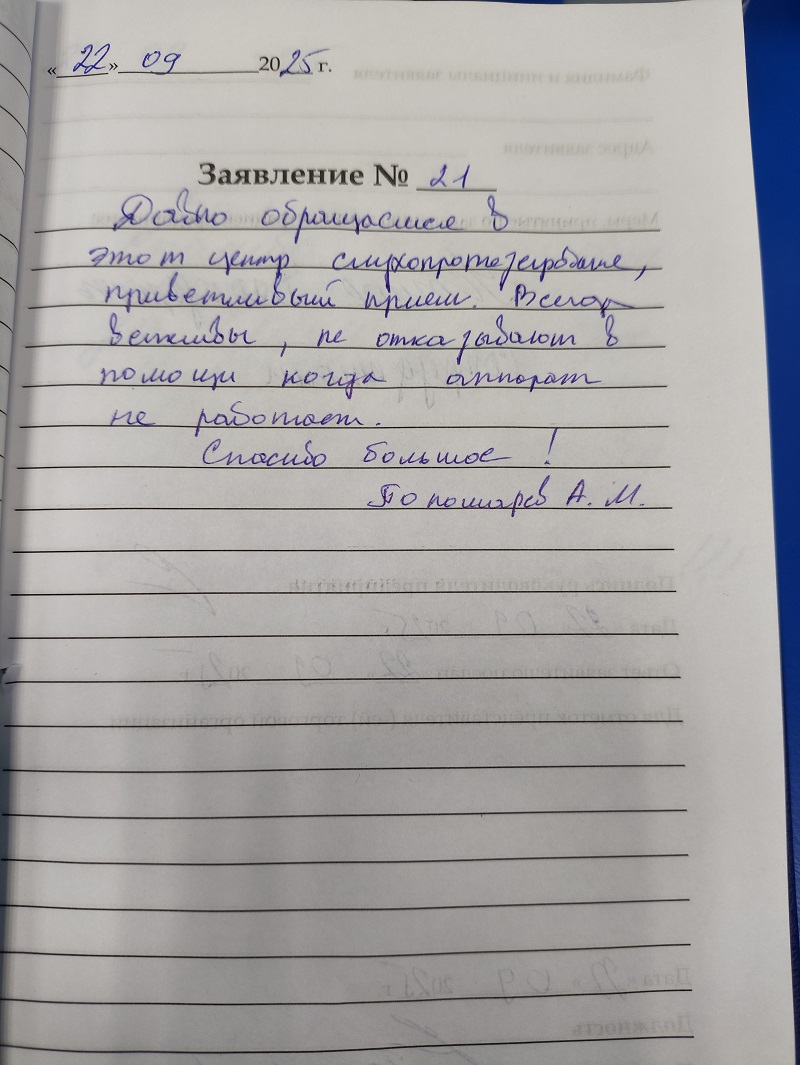 «22» 09 2025 г.
Заявление № 21
Давно обращаемся в
этот центр слухопротезирования,
приветливый прием. Всегда
вежливы, не отказывают в
помощи когда аппарат
не работает.
Спасибо большое!
Пономарев А. М.